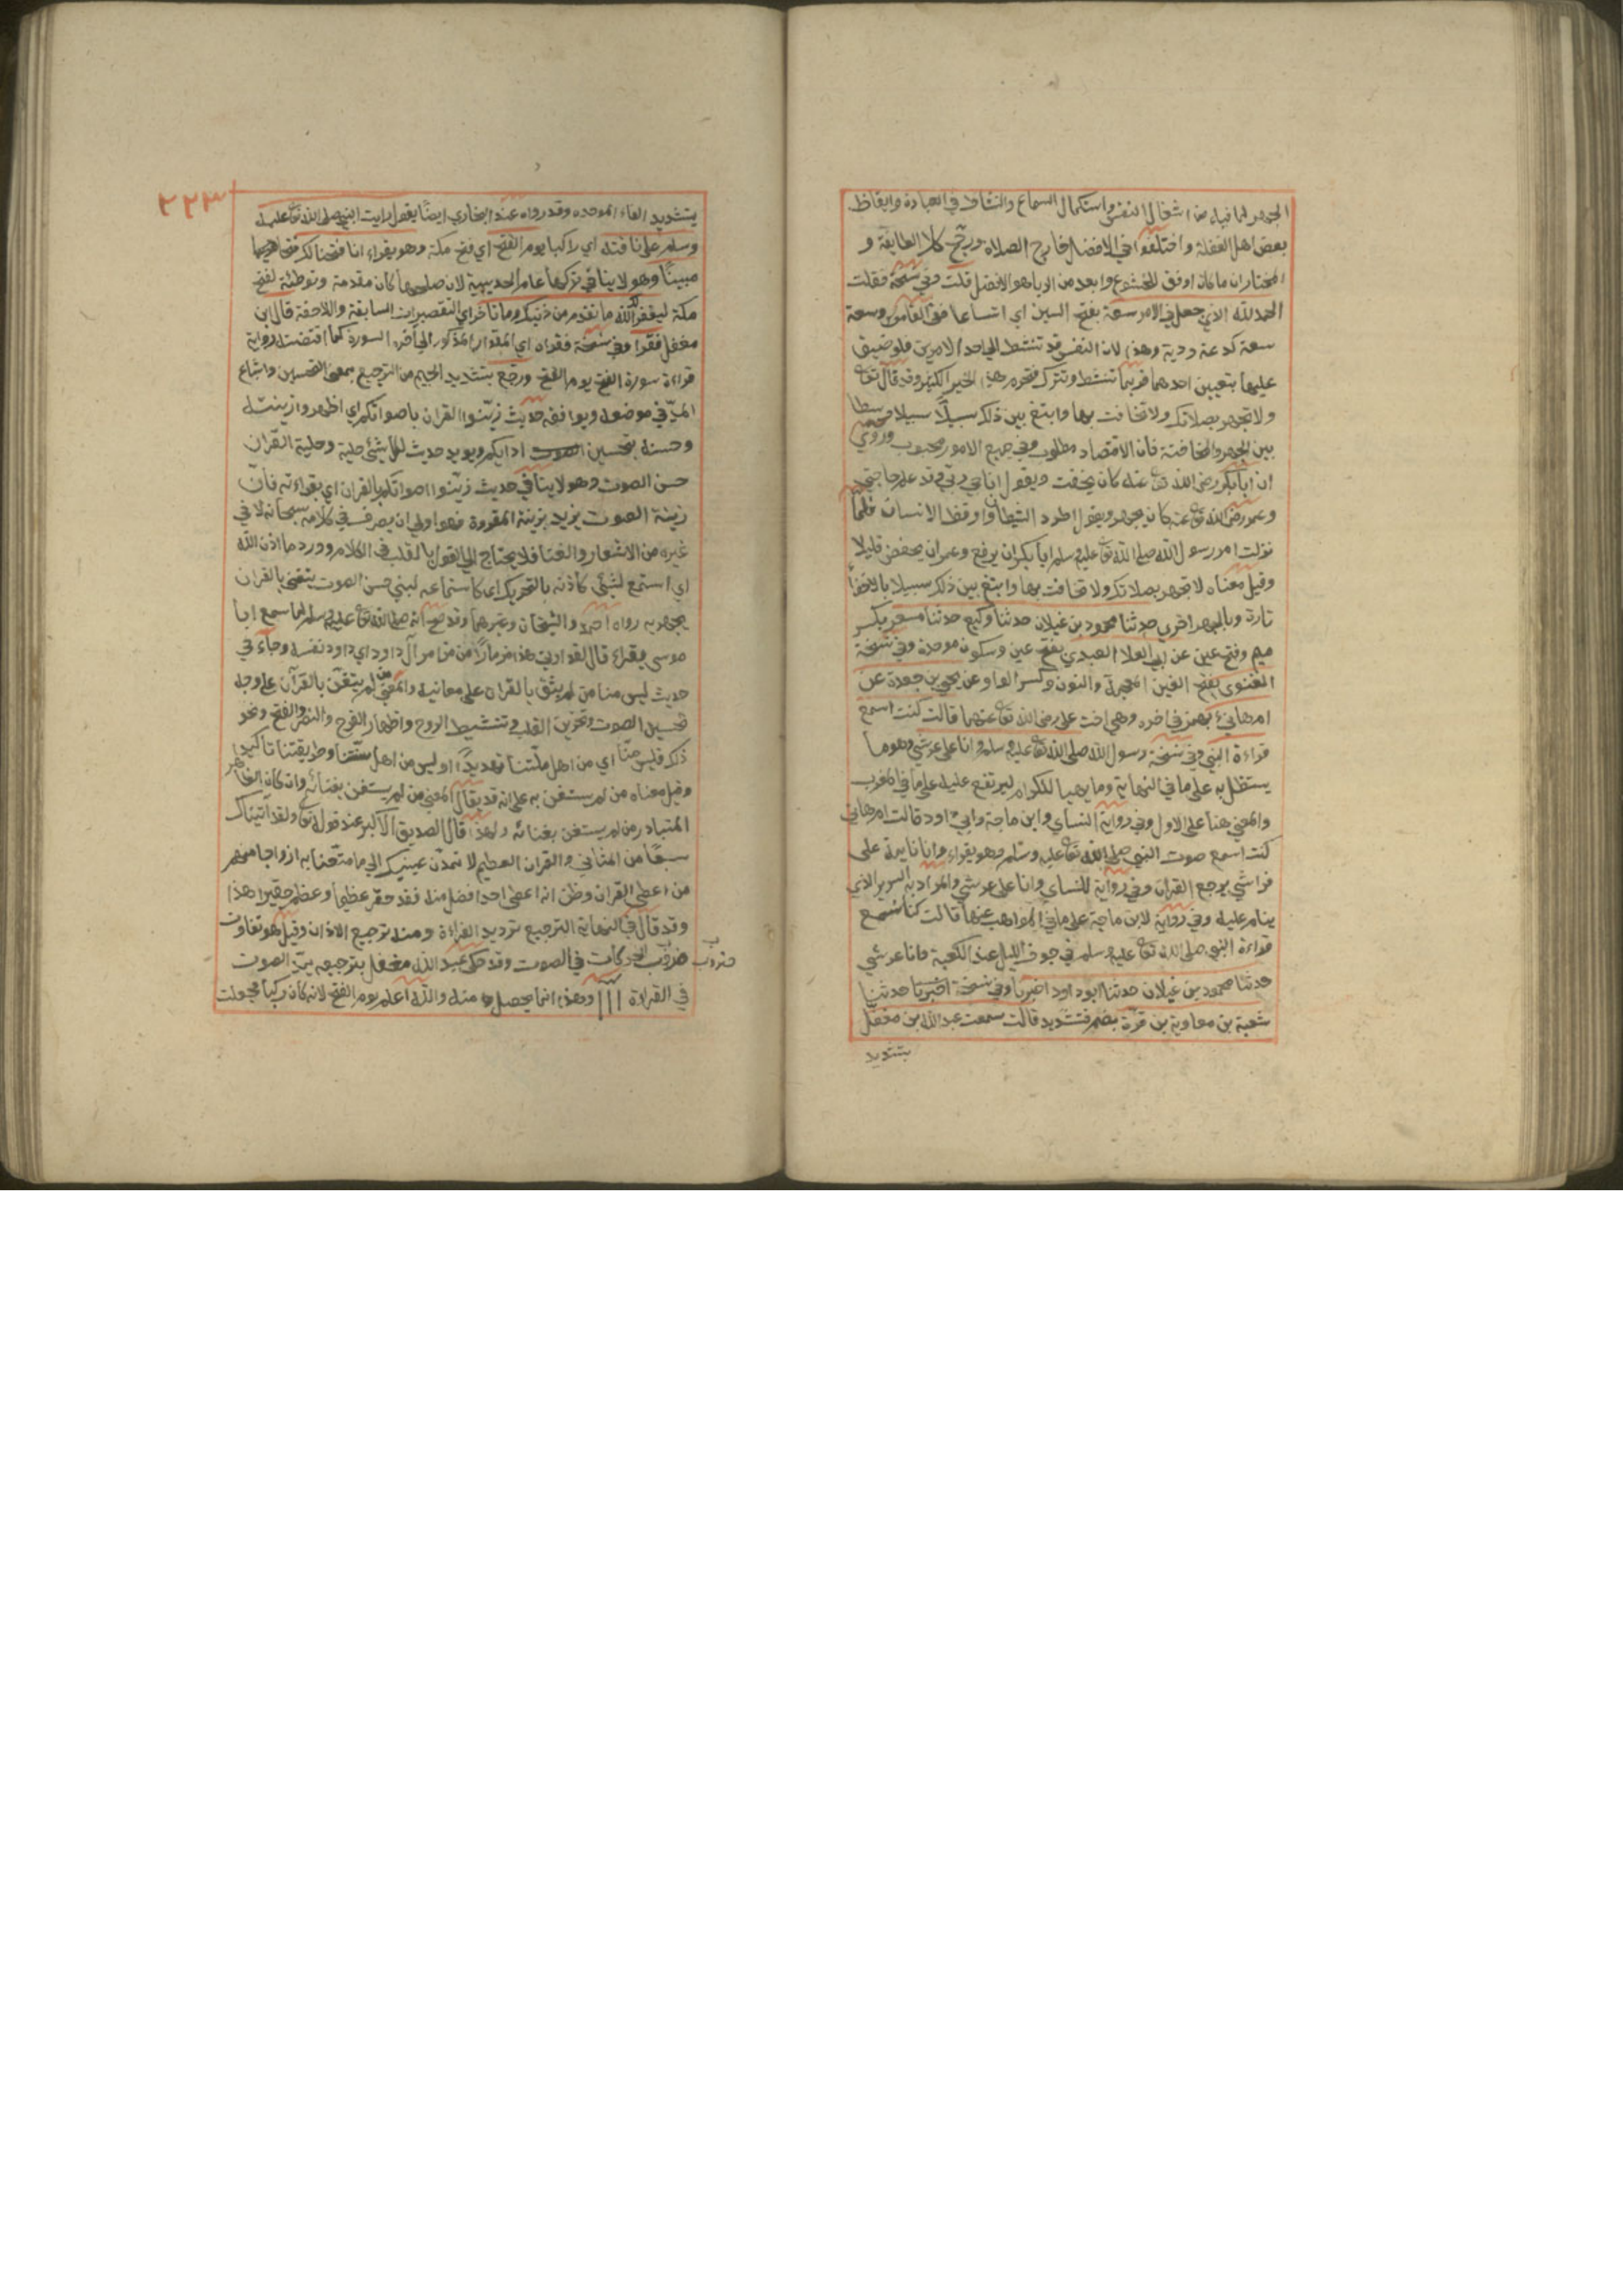 الجهر لما فيه من اشغال النفس واستكمال السماع والنشاط في العبادة وايقاظ
بعض اهل الغفلة واختلفوا في الافضل خارج الصلاه ورجح كلا الطايفة و
المختار ان ما كان اوفق للخشوع وابعد من الريا هو الافضل قلت وفي نسخة فقلت
الحمد لله الذي جعل في الامر سعة بفتح السين اي اتساعا ففي القاموس وسعه
سعة كدعة ودية وهذا لان النفس قد تنشط الي احد الامرين فلو ضيق
عليها بتعيين احدهما فربما تنشط وتترك فتحرم هذا الخير الكثير وقد قال تع
ولا تجهر بصلاتك ولا تخافت بها وابتغ بين ذلك سبيلا سبيلا وسطا
بين الجهر والمخافتة فان الاقتصاد مطلوب وفي جميع الامور محبوب وروي
ان ابابكر رضي الله تع عنه كان يخفت ويقول اناجي ربي وقد علم حاجتي
وعمر رضي الله تع عنه كان يجهر ويقول اطرد الشيطان واوقظ الانسان فلما
نزلت امر رسول الله صلي الله تع عليه وسلم ابا بكر ان يرفع وعمر ان يخفض قليلا
وقيل معناه لا تجهر بصلاتك ولا تخافت بها وابتغ بين ذلك سبيلا بالاخفا
تارة وبالجهر اخري حدثنا محمود بن غيلان حدثنا وكيع حدثنا مسعر بكسر
ميم وفتح عين عن ابي العلا العبدي بفتح عين وسكون موحدة وفي نسخة
الغنوي بفتح الغين المعجمة والنون وكسر الواو عن يحيى بن جعدة عن
ام هانئ بهمز في اخره وهي اخت علي رضي الله تع عنهما قالت كنت اسمع
قراءة النبي وفي نسخة رسول الله صلي الله تع عليه وسلم وانا علي عريشي وهو ما
يستظل به علي ما في النهاية وما يهيا للكرم ليرتفع عليه علي ما في المغرب
والمعني هنا علي الاول وفي رواية النساي وابن ماجة وابي داود قالت ام هاني
كنت اسمع صوت النبي صلي الله تع عليه وسلم وهو يقراء وانا نايمة علي
فراشي يرجع القران وفي رواية للنساي وانا علي عريشي والمراد به السرير الذي
ينام عليه وفي رواية لابن ماجة علي ما في المواهب عنها قالت كنا نسمع
قراءة النبي صلي الله تع عليه وسلم في جوف الليل عند الكعبة وانا عريشي
حدثنا محمود بن غيلان حدثنا ابو داود اخبرنا وفي نسخة اخبرنا حدثنا
شعبة بن معاوية بن قرة بضم فتشديد قالت سمعت عبد الله بن مغفل
بتشديد
٢٢٣
بتشديد الفاء الموحده وقد رواه عند البخاري ايضا يقول رايت النبي صلي الله تع عليه
وسلم علي ناقته اي راكبا يوم الفتح اي فتح مكة وهو يقراء انا فتحنا لك فتحا
مبينا وهو لا ينافي نزلها عام الحديبية لان صلحها كان مقدمة وتوطئة لفتح
مكة ليغفر لك الله ما تقدم من ذنبك وما تاخر اي التقصيرات السابقة واللاحقة قال ابن
مغفل فقرا وفي نسخة فقراه اي المقدار المذكور الي اخر السورة كما اقتضته رواية
قراءة سورة الفتح يوم الفتح ورجع بتشديد الجيم من الترجيع بمعني التحسين واشباع
المد في موضعه ويوافقه حديث زينوا القران باصواتكم اي اظهروا زينته
وحسنه بتحسين ادايكم ويويد حديث لكل شئ حلية وحلية القران
حسن الصوت وهو لا ينافي حديث زينوا اصواتكم بالقران اي بقراءته فان
زينة الصوت يزيد بزينة المقروة فهو اولي ان يصرف في كلامه سبحانه لا في
غيره من الاشعار والغنا فلا يحتاج الي القول بالقلب في الكلام وورد ما اذن الله
اي استمع لشئ كاذنه بالتحريك اي كاستماعه لنبي حسن الصوت يتغني بالقران
يجهر به رواه احمد والشيخان وغيرهما وقد صح انه صلي الله تع عليه وسلم لما سمع ابا
موسي يقراء قال لقد اوتي هذا مزمارا من مزامير آل داود اي داود نفسه وجاء في
حديث ليس منا من لم يتغن بالقران علي معانيه والمعني من لم يتغن بالقرآن علي وجه
تحسين الصوت وتحزين القلب وتنشيط الروح واظهار الفرح والنصر والفتح ونحو
ذلك فليس منا اي من اهل ملتنا تهديدا او ليس من اهل سنتنا وطريقتنا تاكيدا
وقيل معناه من لم يستغن به علي انه قد يقال المعني من لم يستغن بغنائه وان كان الظاهر
المتبادر من لم يستغن بغنائه ولهذا قال الصديق الاكبر عند قوله تع ولقد آتيناك
سبعا من المثاني والقران العظيم لا تمدن عينيك الي ما متعنا به ازواجا منهم
من اعطي القران وظن ان اعطي احد افضل منه فقد حقر عظيما وعظم حقيرا هذا
وقد قال في النهاية الترجيع ترديد القراءة ومنه ترجيع الاذان وقيل هو تقارب
ضروب الحركات في الصوت وقد حكي عبد الله مغفل بترجيعه بمد الصوت
ضروب
في القراءة ااا وهذا انما يحصل منه والله اعلم يوم الفتح لانه كان راكبا فجعلت